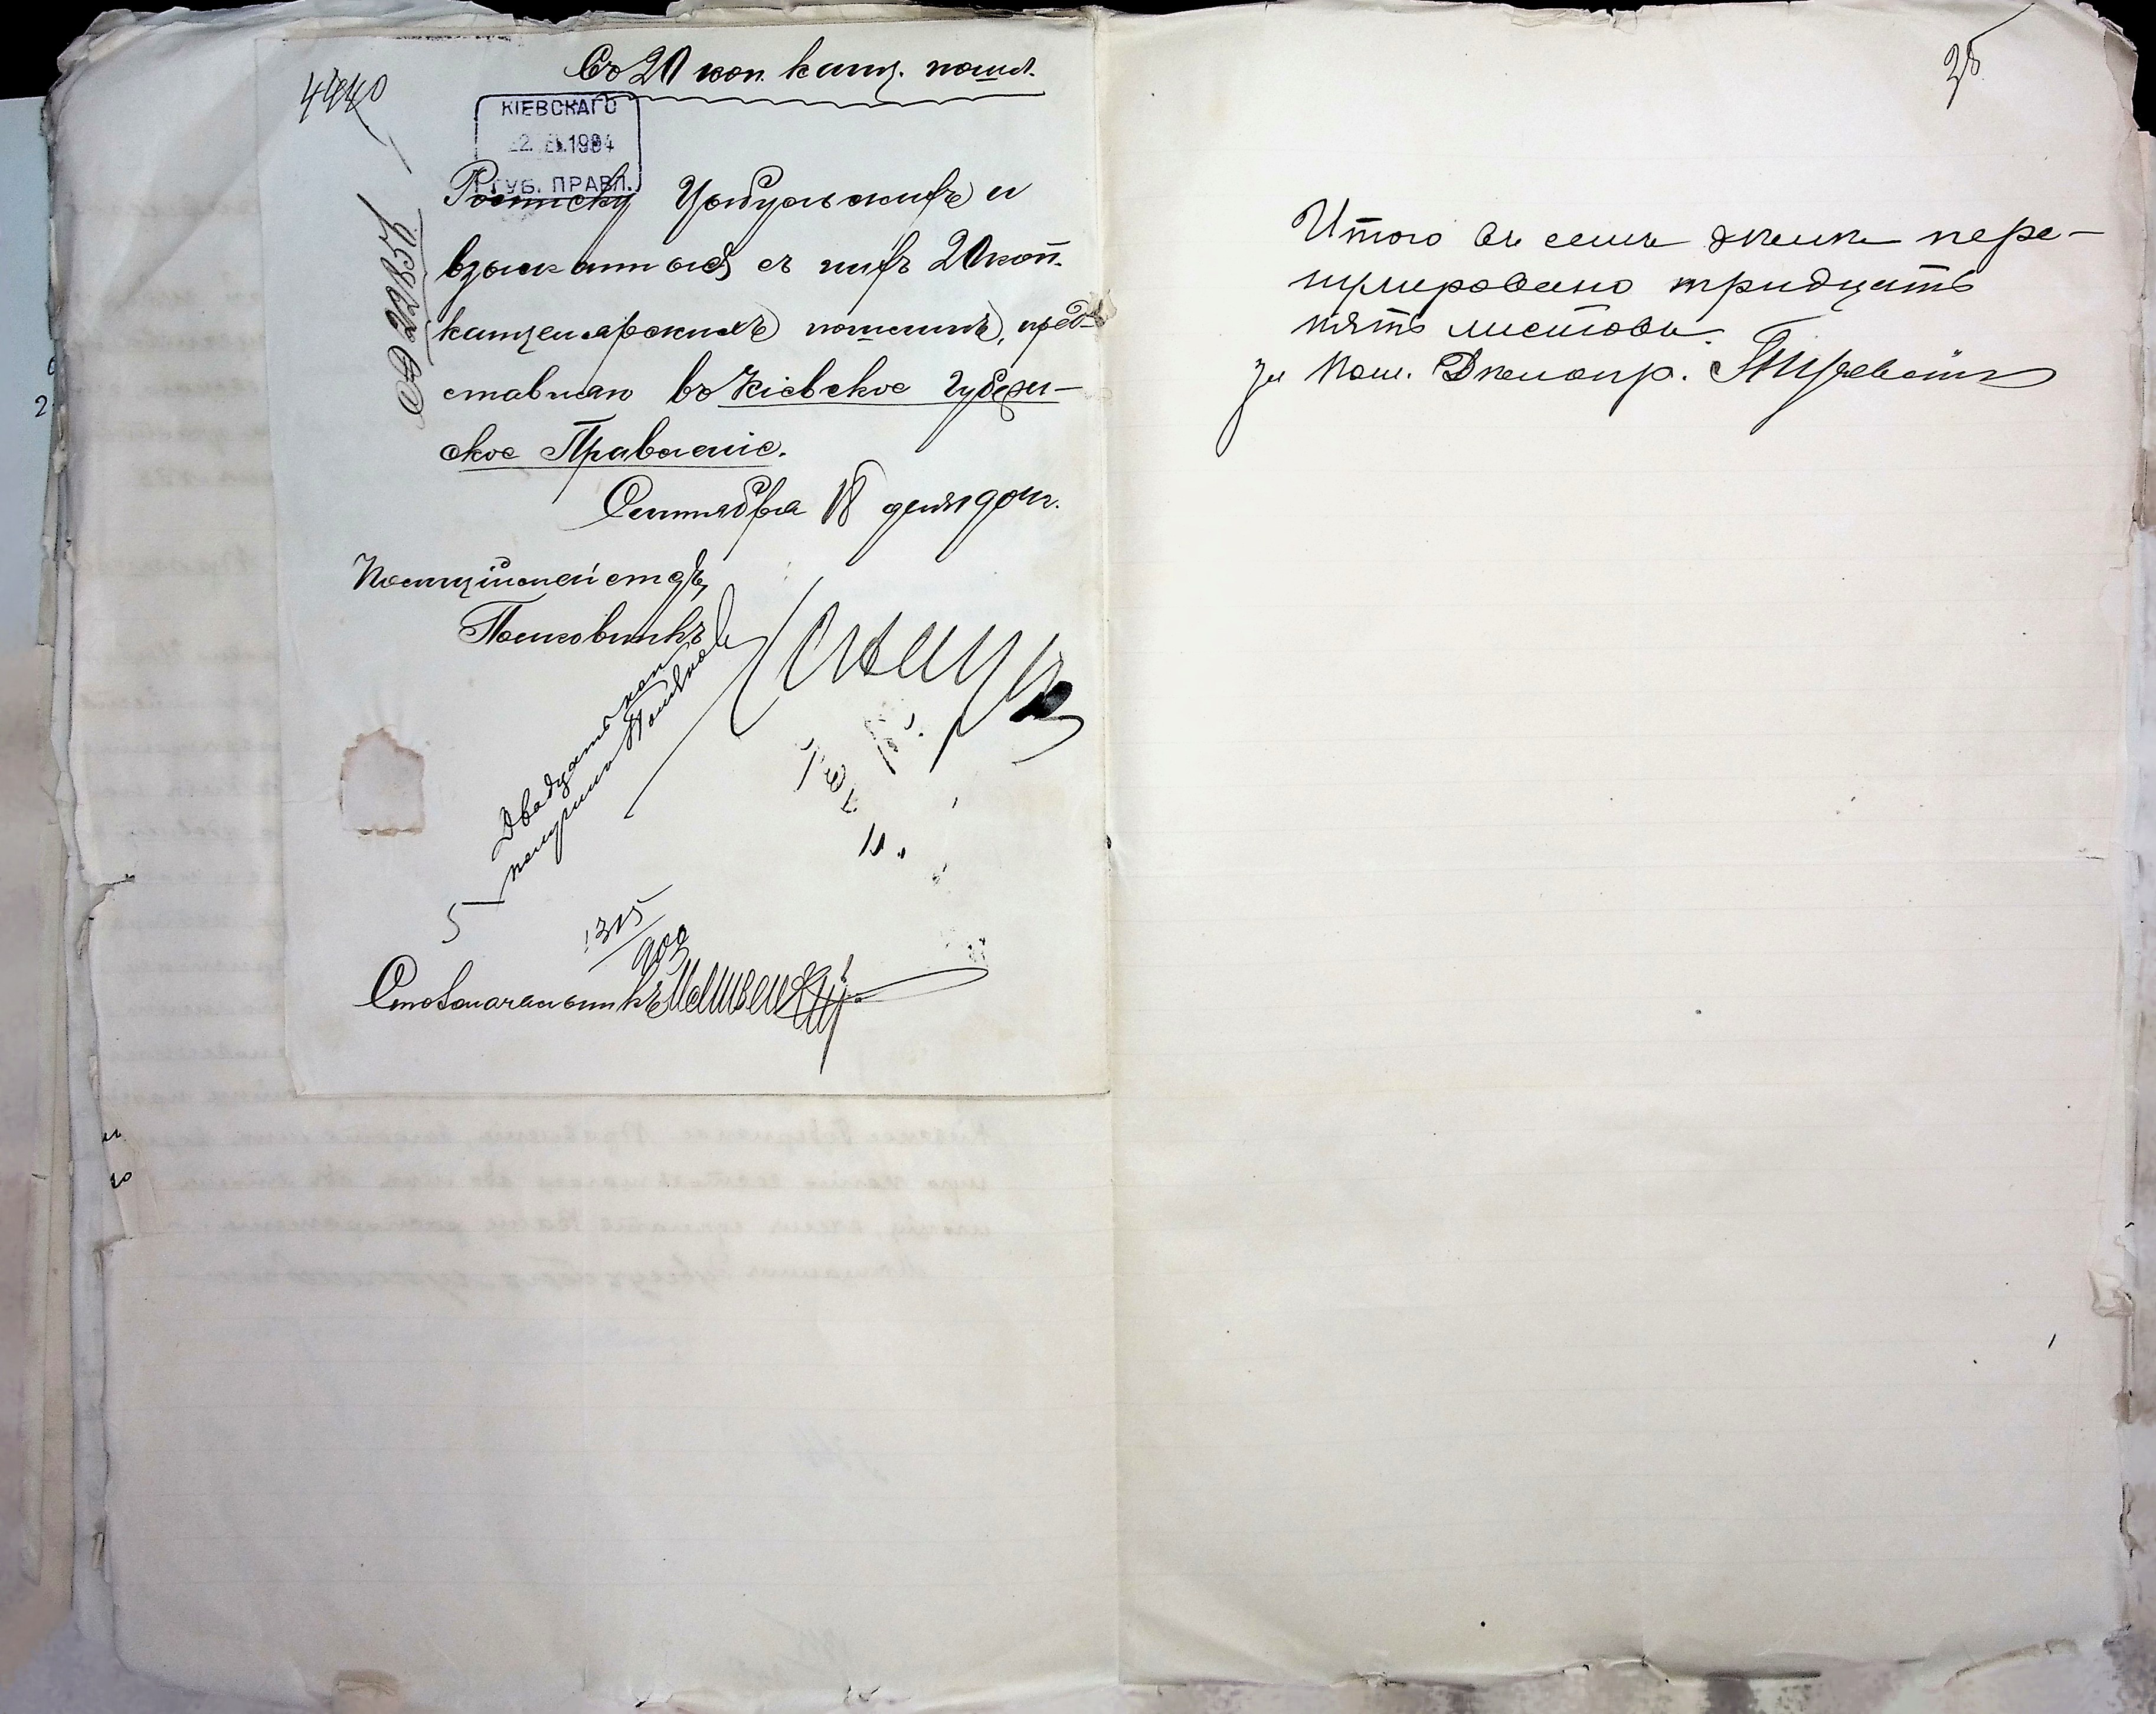 4440
Съ 20 коп. канц. пошл.
КІЕВСКАГО
1904
ГУБ. ПРАВЛ.
№ 22856
Росписку Цыбульскихъ и
взысканныя съ нихъ 20 коп.
канцелярскихъ пошлинъ, пред-
ставляю въ Кіевское Губерн-
ское Правленіе.
Сентября 18 дня 1904 г.
Полиціймейстеръ,
Полковникъ
Двадцать коп
получилъ
5
1315
903
Столоначальникъ
35
Итого въ семъ дѣлѣ пере-
нумеровано тридцать
пять листовъ.
За Пом. Дѣлопр.